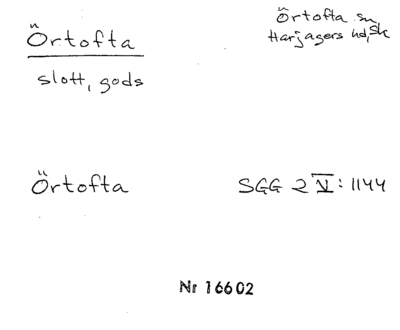 Örtofta
slott, gods
Örtofta sn
Harjagers hd, Sk
Örtofta
SGG 2 V: 1144
Nr 16602